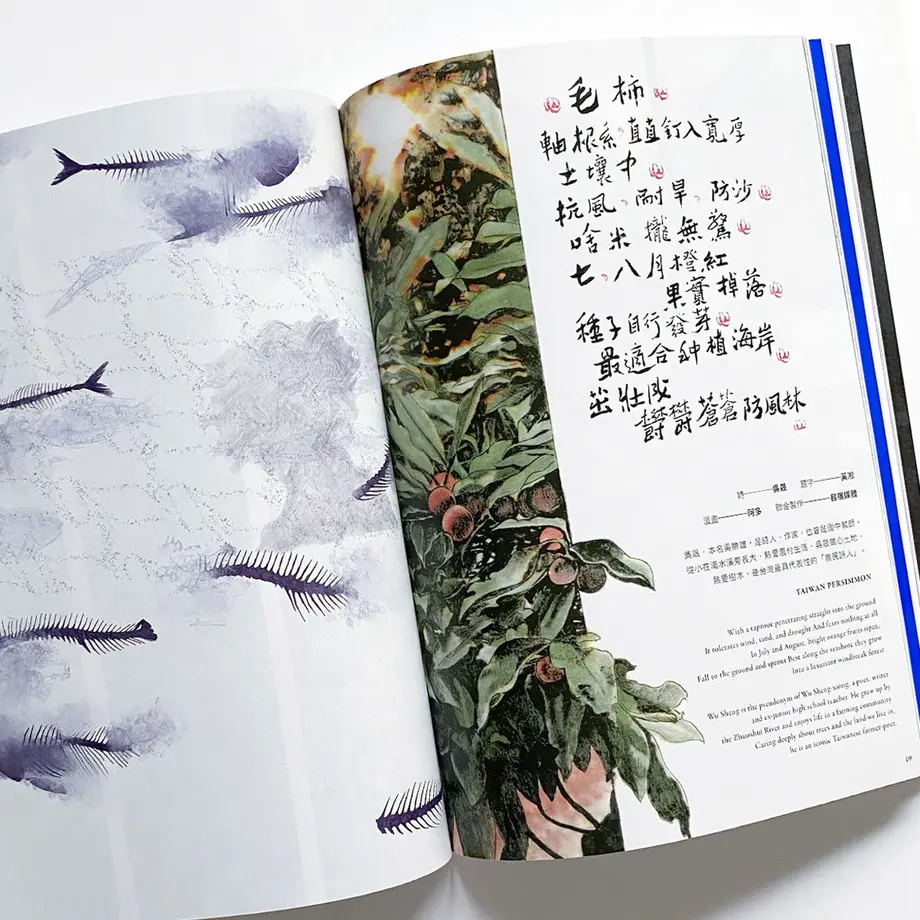 毛柿
軸根系、直直釘入寬厚
土壤中
抗風、耐旱、防沙
啥米攏無驚
七、八月橙紅
果實掉落
種子自行發芽
最適合种植海岸
茁壯成
欝欝蒼蒼防風林
詩———吳晟 題字———
漫畫———阿多 聯合製作———
吳晟，本名吳勝雄，是詩人、作家，也曾是國中教師。
從小在濁水溪旁長大，熱愛農村生活。吳晟關心土地、
熱愛樹木，是台灣最具代表性的「農民詩人」。
TAIWAN PERSIMMON
With a taproot penetrating straight into the ground
It tolerates wind, sand, and drought And fears nothing at all
In July and August, bright orange fruits ripen,
Fall to the ground and sprout Best along the seashore they grow
Into a luxuriant windbreak forest
Wu Sheng is the pseudonym of Wu Sheng-xiong, a poet, writer
and ex-junior high school teacher. He grew up by
the Zhuoshui River and enjoys life in a farming community.
Caring deeply about trees and the land we live in,
he is an iconic Taiwanese farmer-poet.